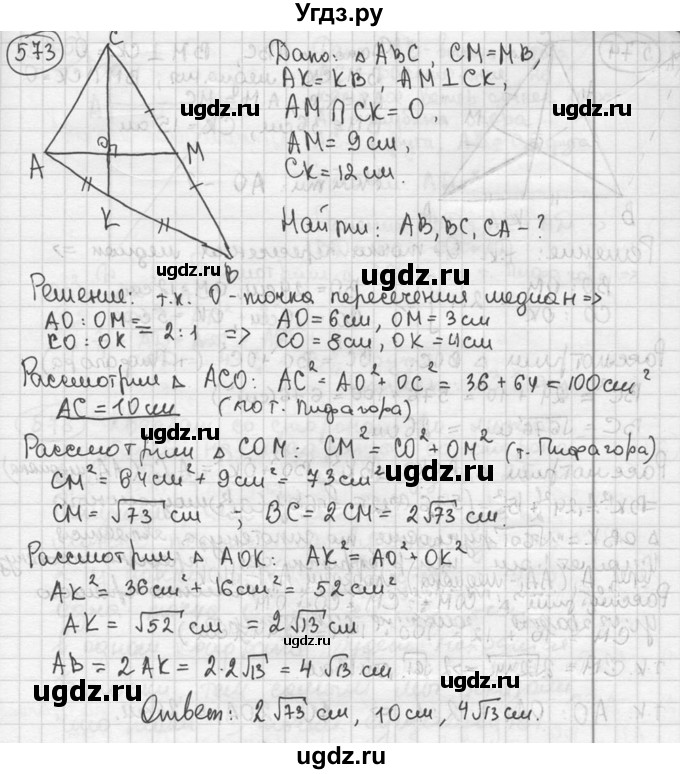 Угдз.ру
573
C
Дано: △ ABC, CM = MB,
AK = KB, AM ⊥ CK,
ugdz.ru
ugdz.ru
AM ∩ CK = O,
O
AM = 9 см,
A
M
CK = 12 см.
K
Найти: AB, BC, CA - ?
B
ugdz.ru
ugdz.ru
Решение: т.к. O - точка пересечения медиан =>
AO : OM =
CO : OK = 2:1 => AO = 6 см, OM = 3 см
CO = 8 см, OK = 4 см
ugdz.ru
Рассмотрим △ ACO: AC² = AO² + OC² = 36 + 64 = 100 см²
AC = 10 см (по т. Пифагора)
ugdz.ru
Рассмотрим △ COM: CM² = CO² + OM² (т. Пифагора)
CM² = 64 см² + 9 см² = 73 см²
ugdz.ru
CM = √73 см ; BC = 2CM = 2√73 см.
ugdz.ru
Рассмотрим △ AOK: AK² = AO² + OK²
AK² = 36 см² + 16 см² = 52 см²
ugdz.ru
AK = √52 см = 2√13 см
ugdz.ru
AB = 2AK = 2·2√13 = 4√13 см.
ugdz.ru
ugdz.ru
Ответ: 2√73 см, 10 см, 4√13 см.
ugdz.ru
ugdz.ru